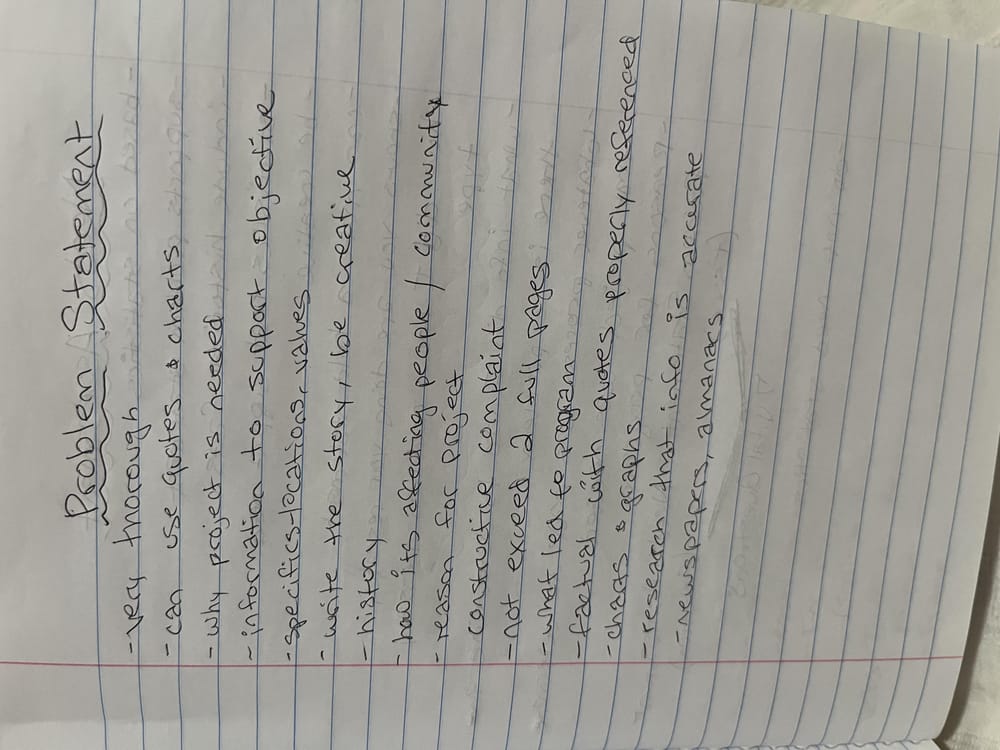 Problem Statement
- very thorough
- can use quotes & charts
- why project is needed
- information to support objective
- specifics-locations, values
- write the story, be creative
- history
- how its affecting people / community
- reason for project
constructive complaint
- not exceed 2 full pages
- what led to program
- factual with quotes properly referenced
- charts & graphs
- research that info is accurate
- newspapers, almanacs